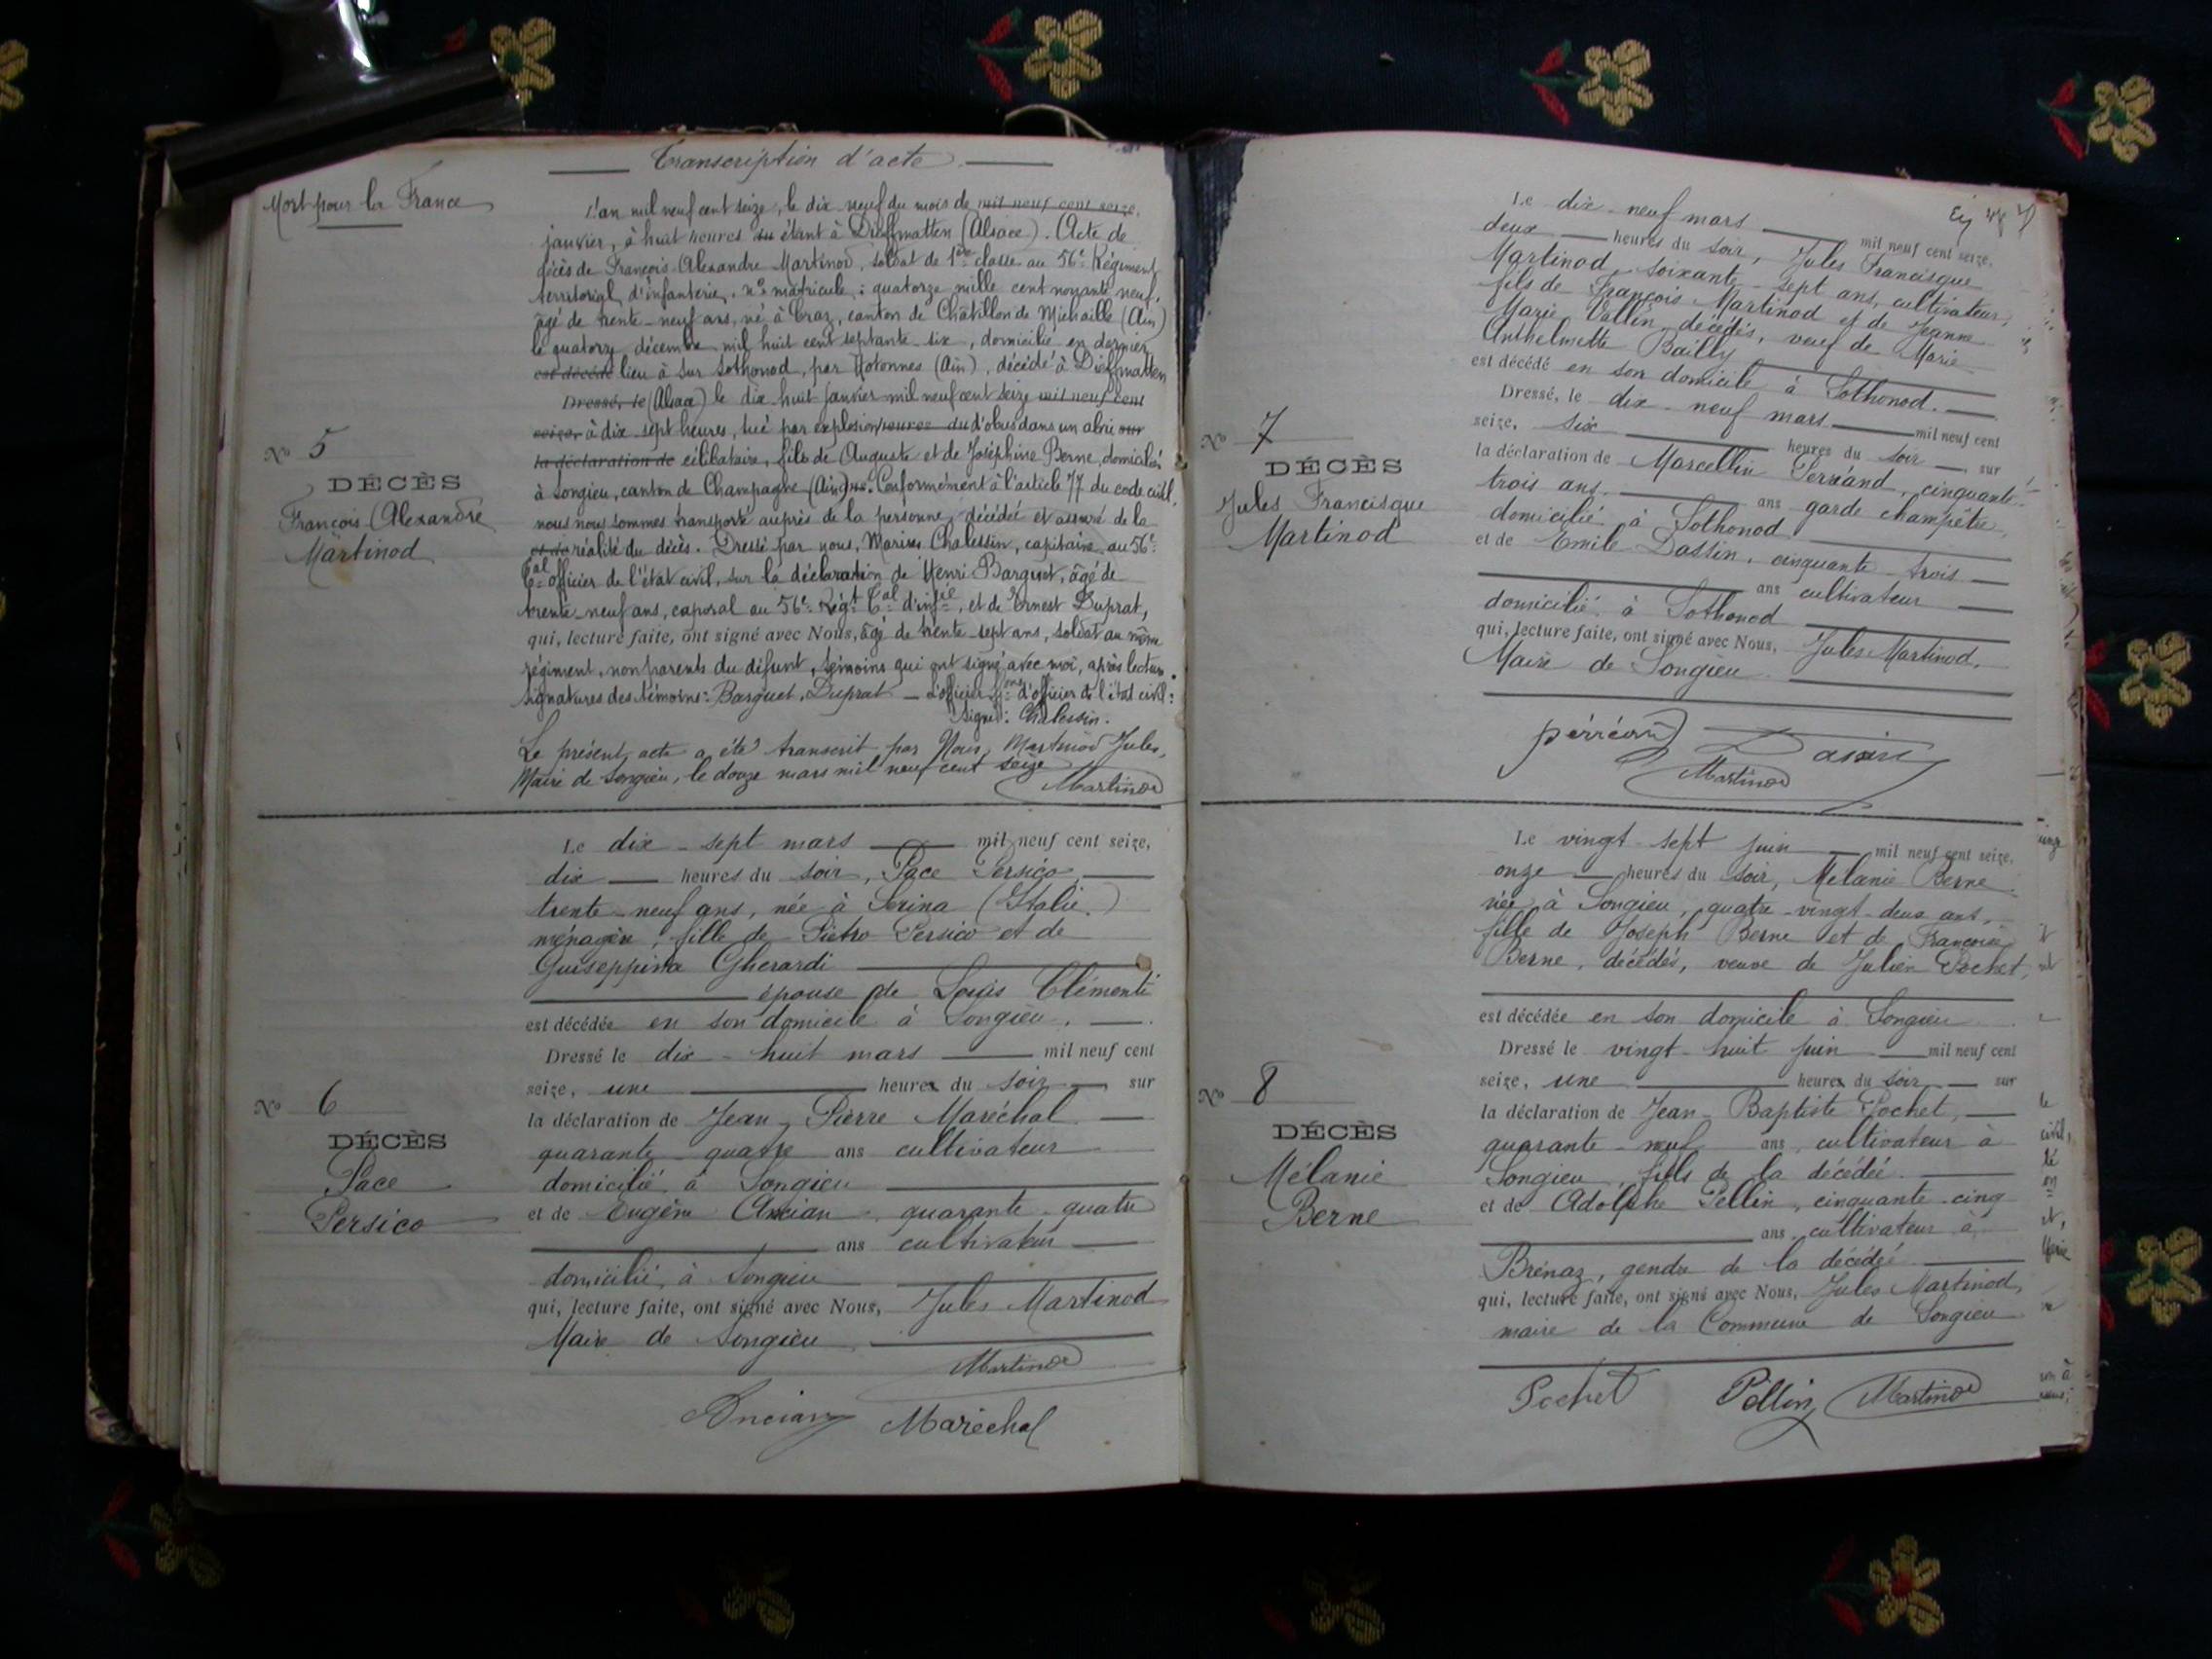 Transcription d'acte
Mort pour la France
L'an mil neuf cent seize, le dix-neuf du mois de mil neuf cent seize,
janvier, à huit heures du étant à Dieffmatten (Alsace). Acte de
décès de François Alexandre Martinod, soldat de 1ère classe au 56e Régiment
territorial d'infanterie, no matricule : quatorze mille cent nonante neuf,
âgé de trente-neuf ans, né à Craz, canton de Châtillon de Michaille (Ain)
le quatorze décembre mil huit cent septante-six, domicilié en dernier
est décédé lieu à Sur Sothonod, par Hotonnes (Ain), décédé à Dieffmatten
Dressé, le (Alsace) le dix-huit janvier mil neuf cent seize mil neuf cent
seize, à dix-sept heures, tué par explosion heures du d'obus dans un abri sur
la déclaration de célibataire, fils de Auguste et de Joséphine Berne, domiciliés
à Songieu, canton de Champagne (Ain). Conformément à l'article 77 du code civil,
nous nous sommes transporté auprès de la personne décédée et assuré de la
et de réalité du décès. Dressé par nous, Marius Chalessin, capitaine au 56e
Tal officier de l'état civil, sur la déclaration de Henri Barquet, âgé de
trente-neuf ans, caporal au 56e Régt Tal d'infie, et de Ernest Duprat,
qui, lecture faite, ont signé avec Nous, âgé de trente-sept ans, soldat au même
régiment, non parents du défunt, témoins qui ont signé avec moi, après lecture.
Signatures des témoins : Barquet, Duprat — L'officier d'officier de l'état civil :
Signé : Chalessin.
Le présent acte a été transcrit par Nous, Martinod Jules,
Maire de Songieu, le douze mars mil neuf cent seize
Martinod
No 5
DÉCÈS
François Alexandre
Martinod
Le dix-sept mars mil neuf cent seize,
dix heures du soir, Pace Persico,
trente-neuf ans, née à Serina (Italie.)
ménagère, fille de Pietro Persico et de
Guiseppina Gherardi
épouse de Louis Clémenti
est décédée en son domicile à Songieu.
Dressé le dix-huit mars mil neuf cent
seize, une heures du soir, sur
la déclaration de Jean-Pierre Maréchal
quarante-quatre ans cultivateur
domicilié à Songieu
et de Eugène Ancian, quarante-quatre
ans cultivateur
domicilié à Songieu
qui, lecture faite, ont signé avec Nous, Jules Martinod
Maire de Songieu.
Martinod
Ancian Maréchal
No 6
DÉCÈS
Pace
Persico
Le dix-neuf mars mil neuf cent seize,
deux heures du soir, Jules Francisque
Martinod, soixante-sept ans, cultivateur,
fils de François Martinod et de Jeanne
Marie Vallin, décédés, veuf de Marie
Anthelmette Bailly
est décédé en son domicile à Sothonod.
Dressé, le dix-neuf mars mil neuf cent
seize, six heures du soir, sur
la déclaration de Marcellin Perréand, cinquante-
trois ans. ans garde champêtre,
domicilié à Sothonod
et de Emile Dassin, cinquante-trois
ans cultivateur
domicilié à Sothonod
qui, lecture faite, ont signé avec Nous, Jules Martinod,
Maire de Songieu.
perréand
Martinod
No 7
DÉCÈS
Jules Francisque
Martinod
Le vingt-sept juin mil neuf cent seize,
onze heures du soir, Mélanie Berne
née à Songieu, quatre-vingt-deux ans,
fille de Joseph Berne et de Françoise
Berne, décédés, veuve de Julien Pochet,
est décédée en son domicile à Songieu
Dressé le vingt-huit juin mil neuf cent
seize, une heures du soir sur
la déclaration de Jean-Baptiste Pochet,
quarante-neuf ans, cultivateur à
Songieu, fils de la décédée
et de Adolphe Pellin, cinquante-cinq
ans, cultivateur à
Brénaz, gendre de la décédée
qui, lecture faite, ont signé avec Nous, Jules Martinod,
maire de la Commune de Songieu
Pochet Pellin Martinod
No 8
DÉCÈS
Mélanie
Berne